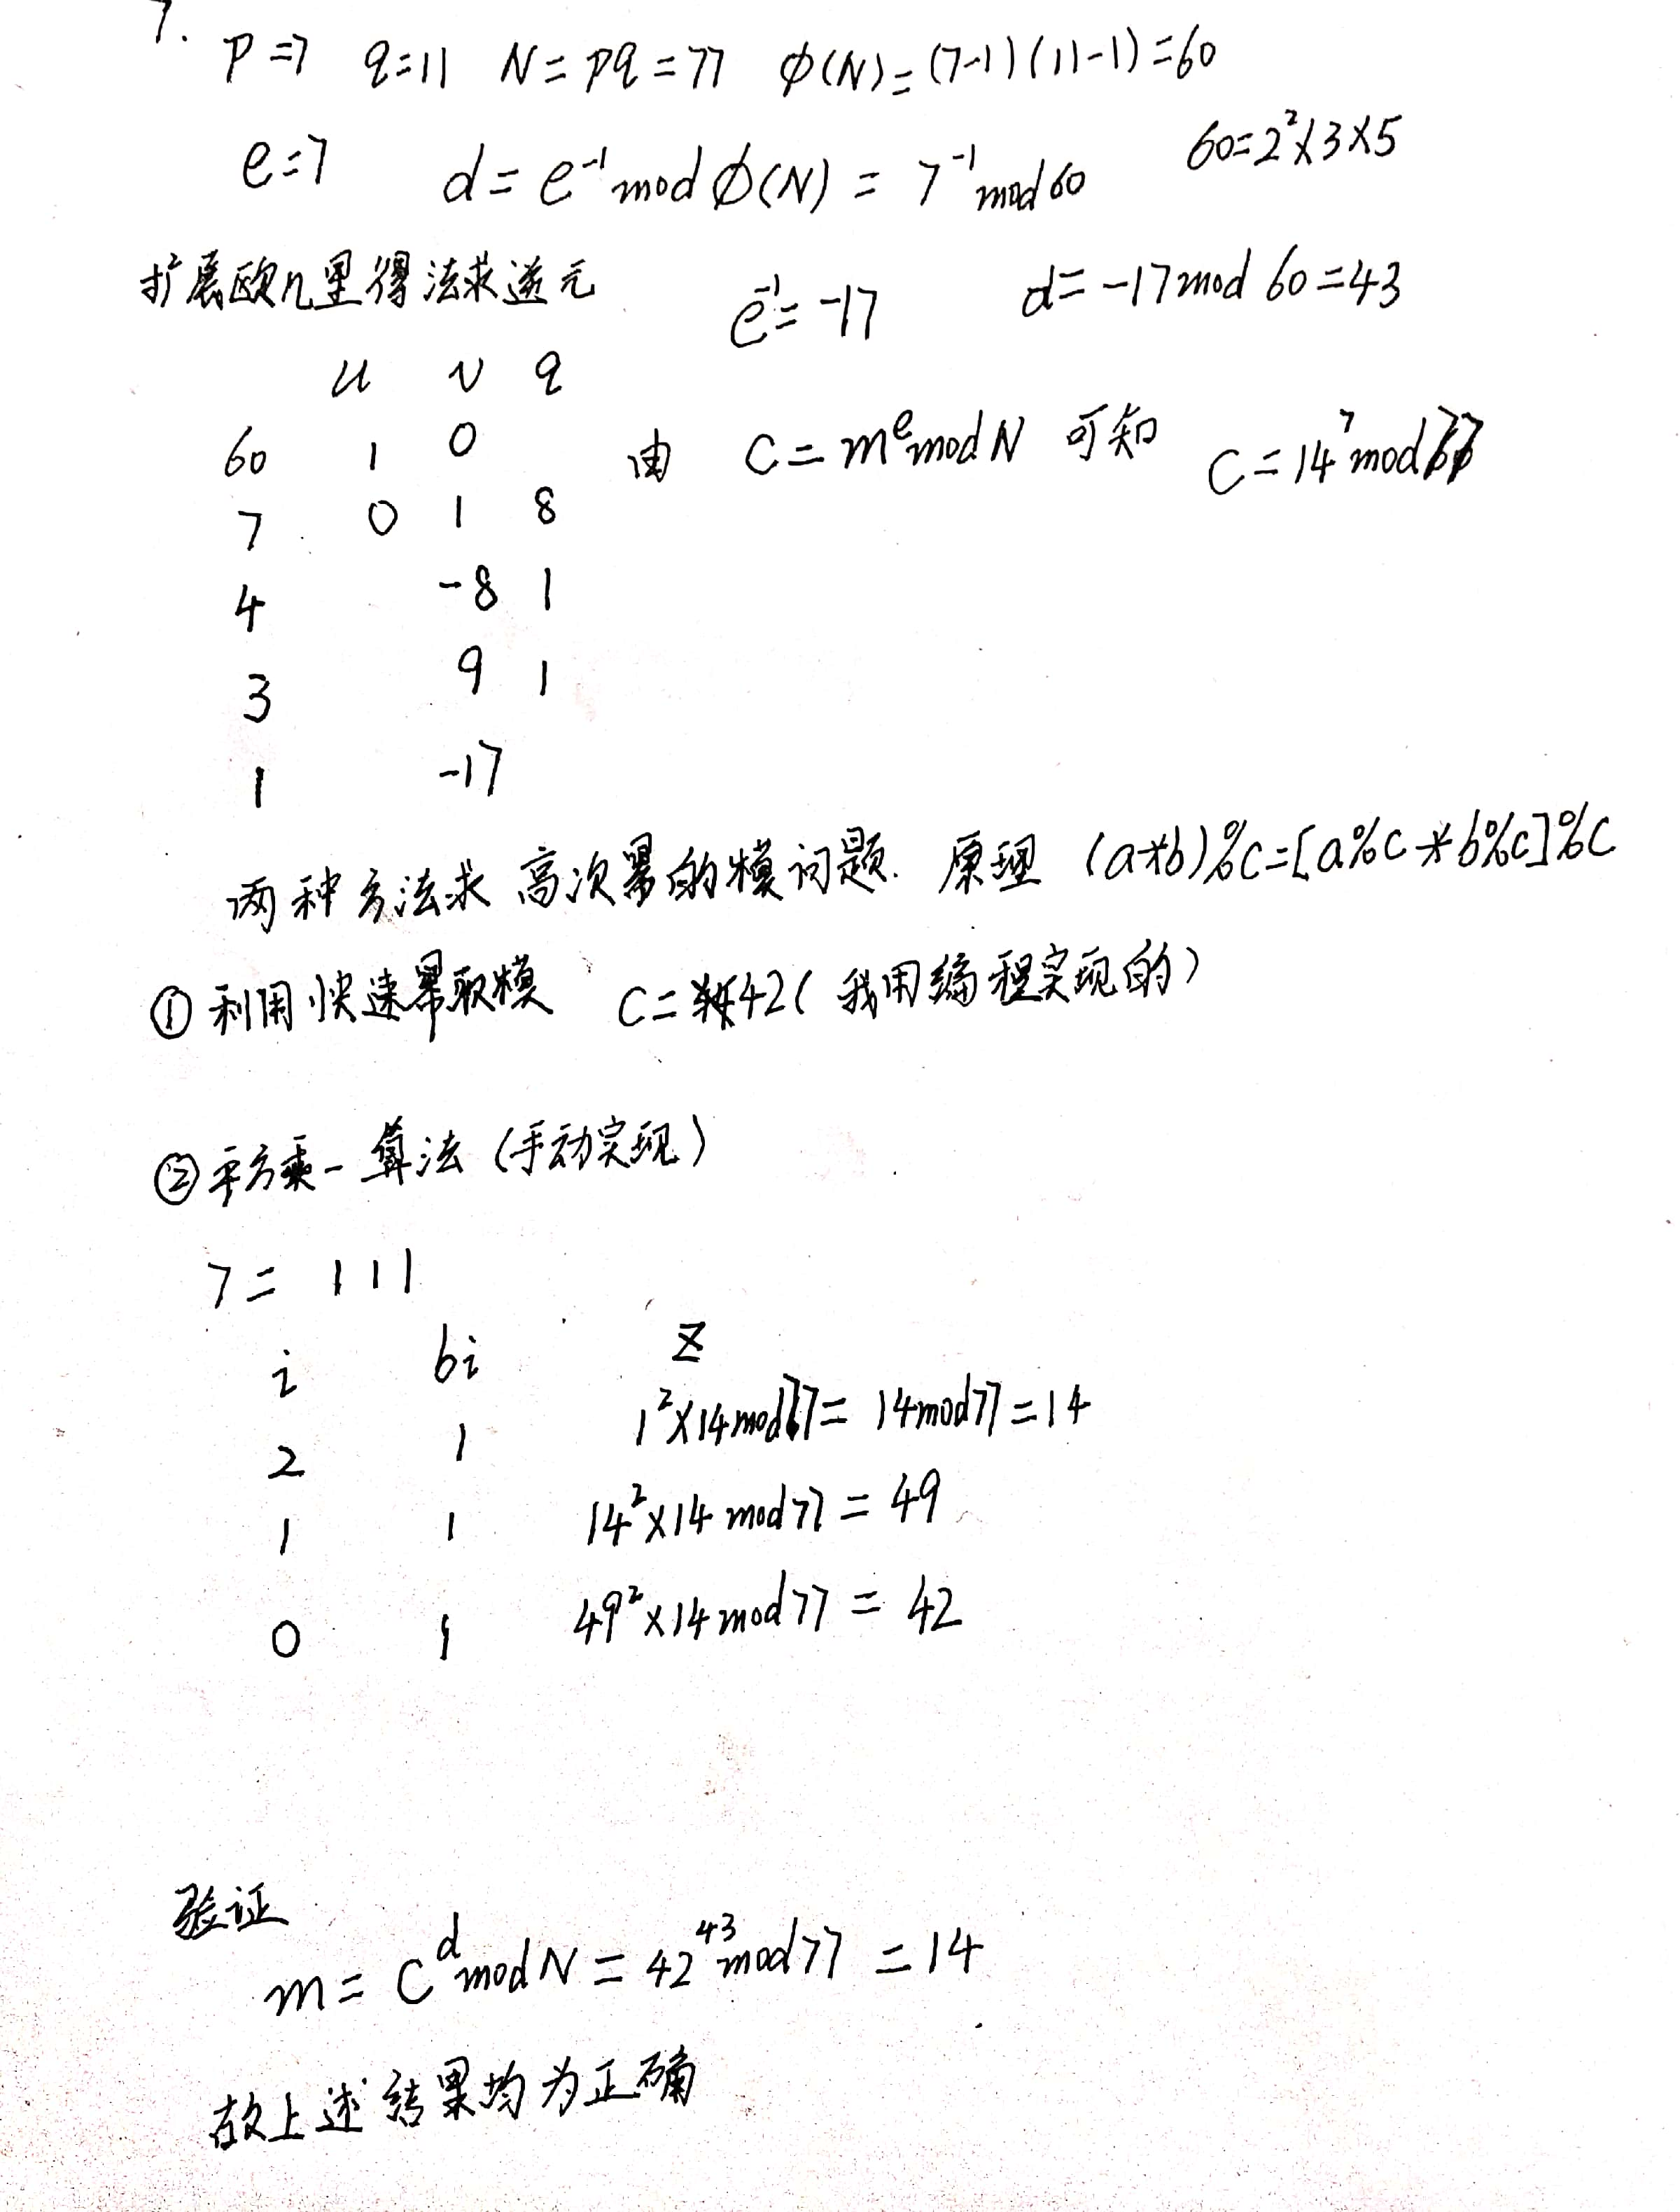 7. P=7 q=11 N=pq=77 φ(N)=(7-1)(11-1)=60
e=7 d=e⁻¹mod φ(N)=7⁻¹mod60 60=2²×3×5
扩展欧几里得法求逆元 e⁻¹=-17 d=-17mod 60=43
u v q
60 1 0 由 C=mᵉmodN 可知 C=14⁷mod77
7 0 1 8
4 -8 1
3 9 1
1 -17
两种方法求高次幂的模问题. 原理 (a*b)%c=[a%c*b%c]%c
①利用快速幂取模 C=42(我用编程实现的)
②平方乘-算法(手动实现)
7= 111
i bi z
2 1 1²×14mod77=14mod77=14
1 1 14²×14mod77=49
0 1 49²×14mod77=42
验证
m=CᵈmodN=42⁴³mod77=14
故上述结果均为正确